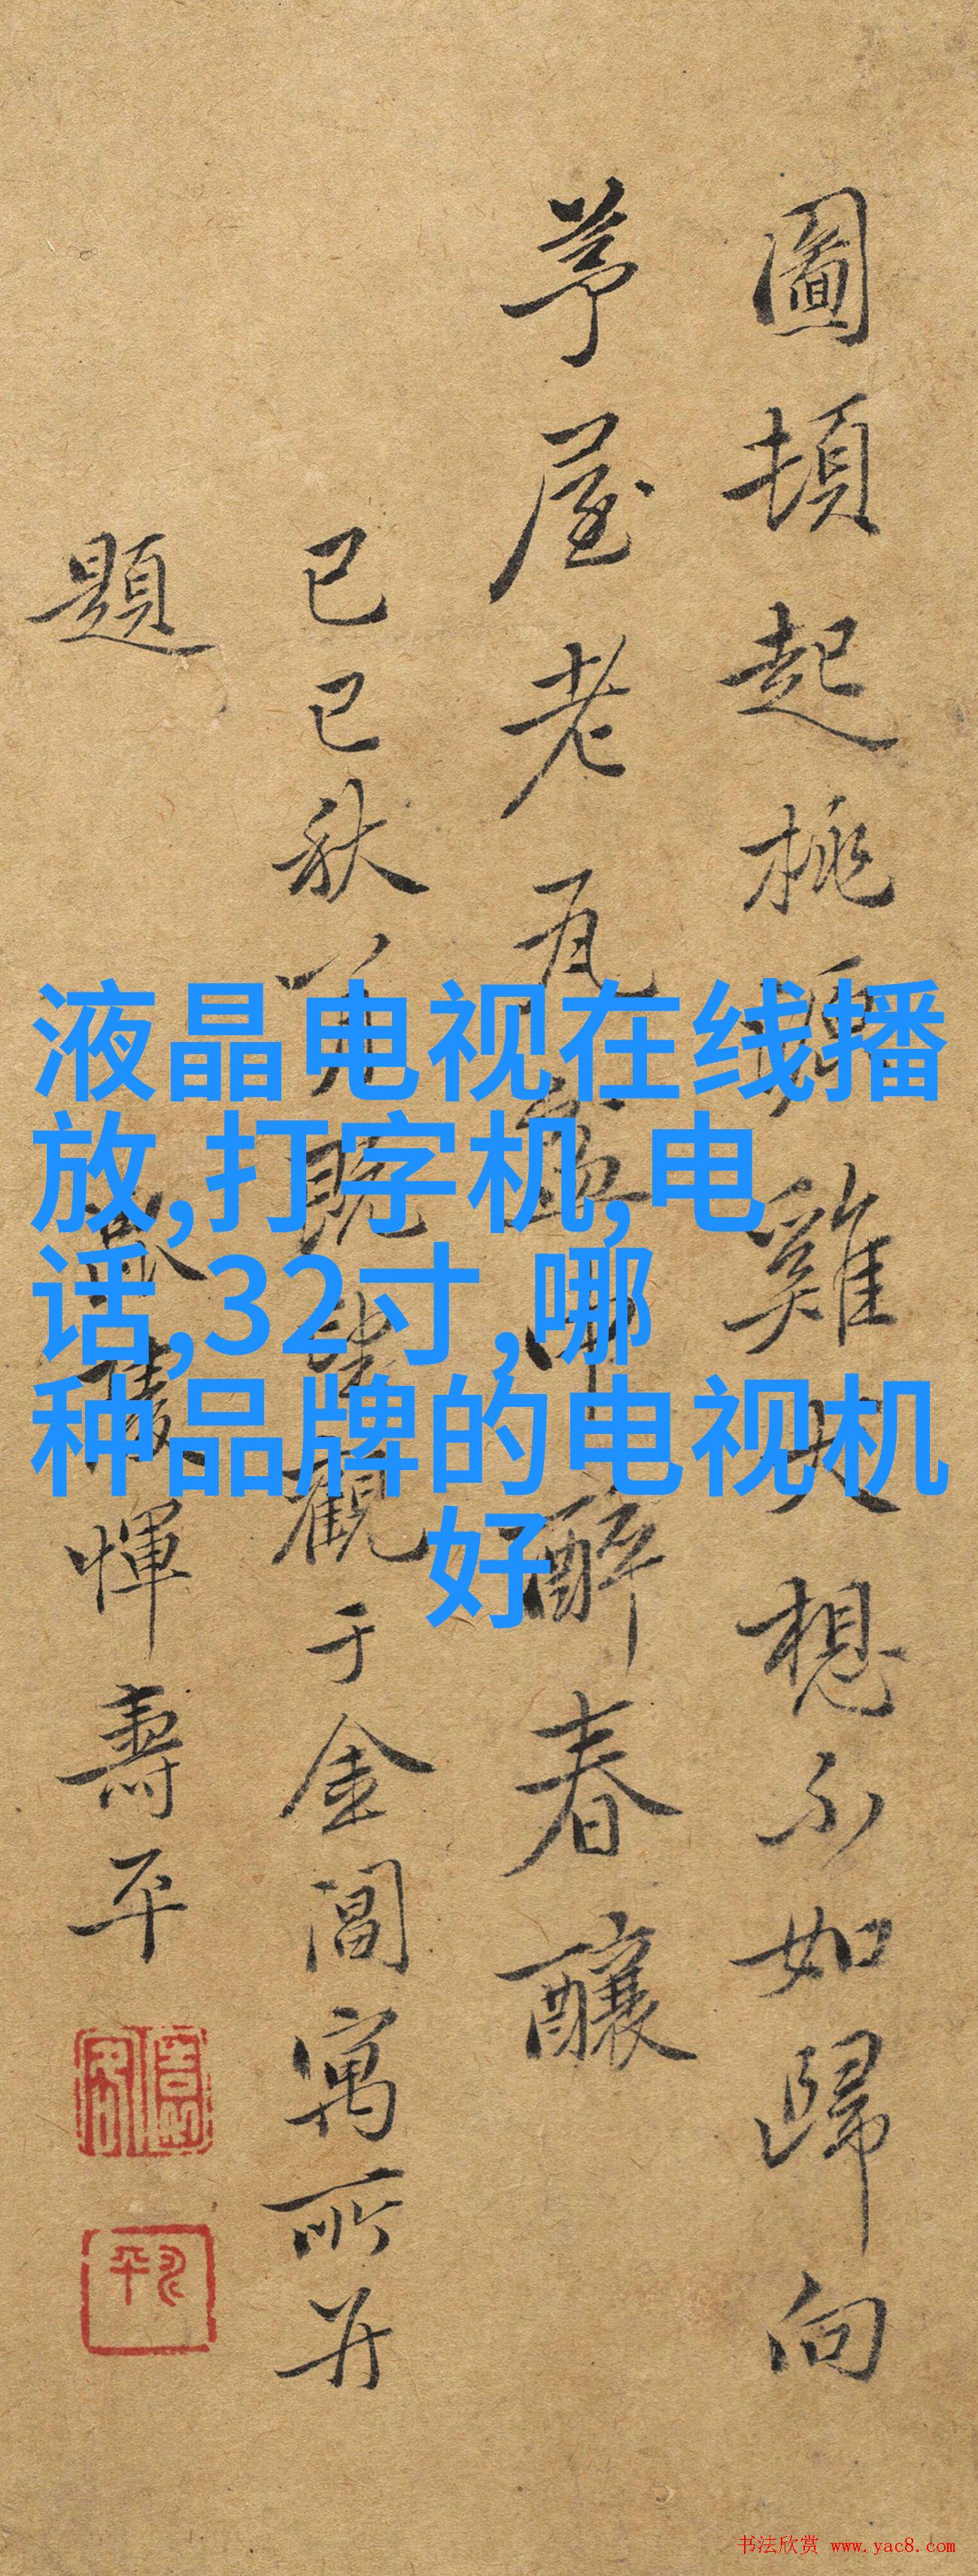 液晶电视在线播
放,打字机,电
话,32寸,哪
种品牌的电视机
好
圖頓起桃源雞犬想不如歸向
茅屋老瓦盆中醉春釀
己巳秋既望觀于金閶寓所并
題陵惲壽平
书法欣赏 www.yac8.com